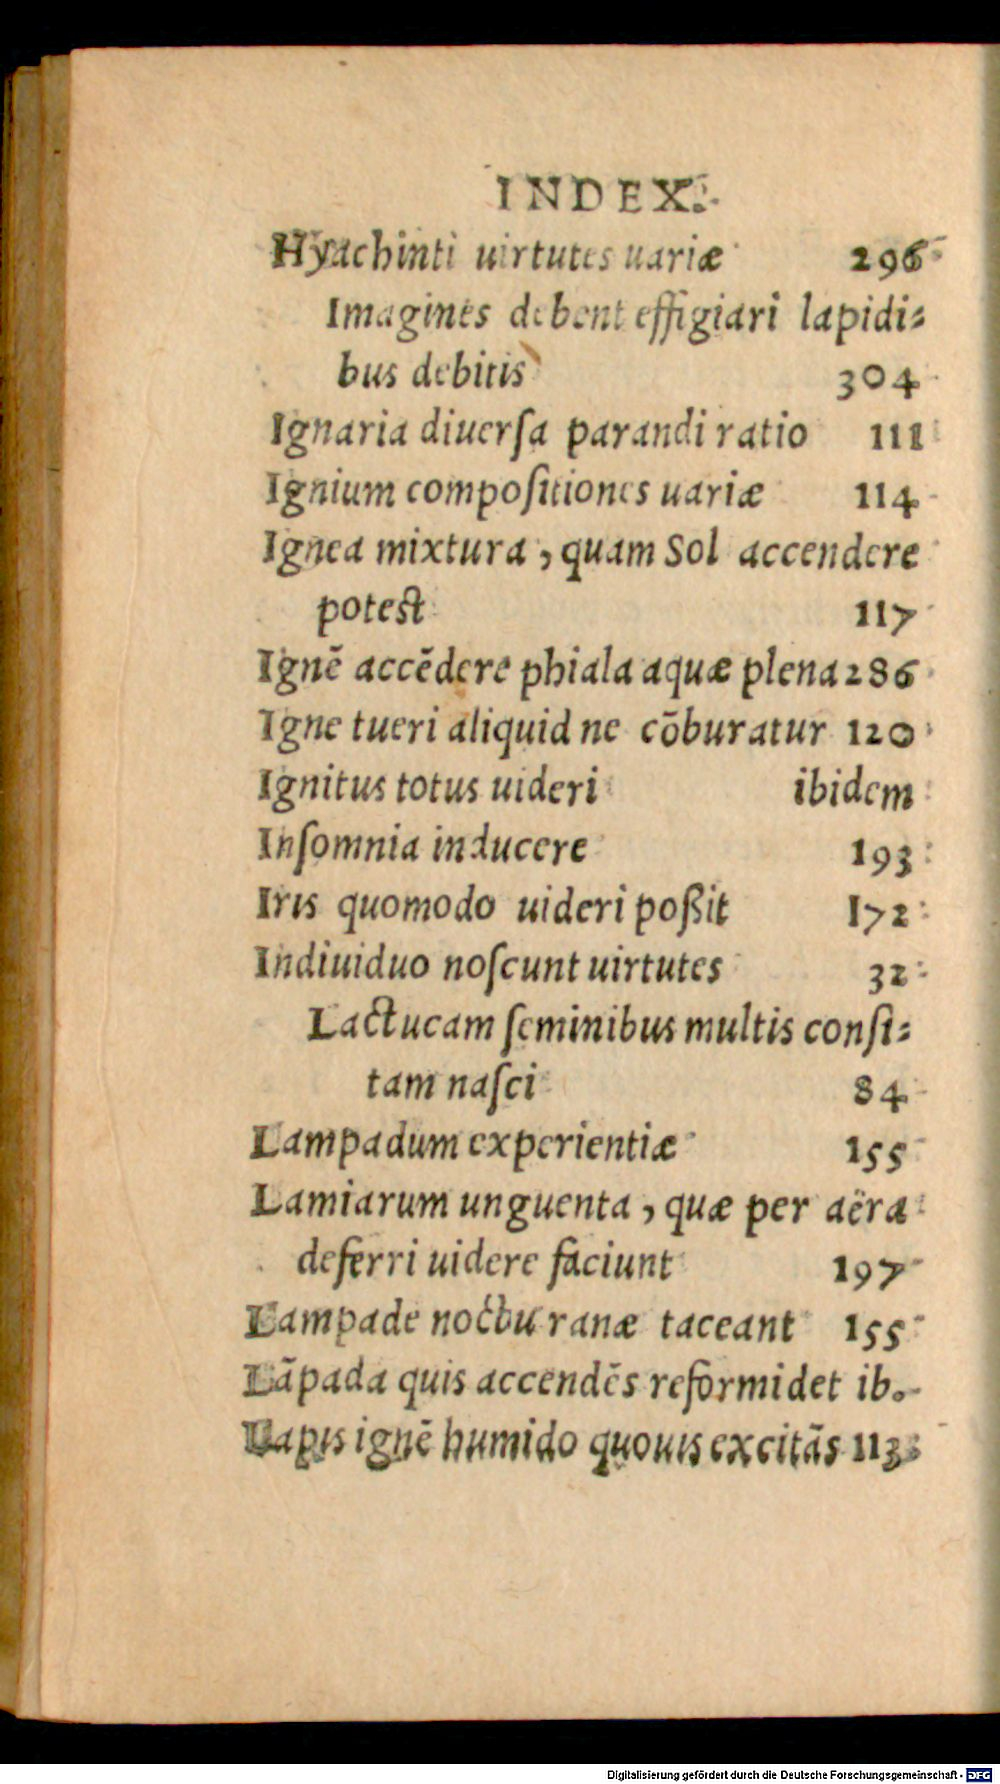 INDEX.
Hyachinti uirtutes uariæ 296
Imagines debent effigiari lapidi=
bus debitis 304
Ignaria diuersa parandi ratio 111
Ignium compositiones uariæ 114
Ignea mixtura, quam Sol accendere
potest 117
Ignē accēdere phiala aquæ plena 286
Igne tueri aliquid ne cōburatur 120
Ignitus totus uideri ibidem
Insomnia inducere 193
Iris quomodo uideri poßit 172
Indiuiduo noscunt uirtutes 32
Lactucam seminibus multis consi=
tam nasci 84
Lampadum experientiæ 155
Lamiarum unguenta, quæ per aëra
deferri uidere faciunt 197
Lampade noctu ranæ taceant 155
Lāpada quis accendēs reformidet ib.
Lapis ignē humido quouis excitās 113
Digitalisierung gefördert durch die Deutsche Forschungsgemeinschaft - DFG